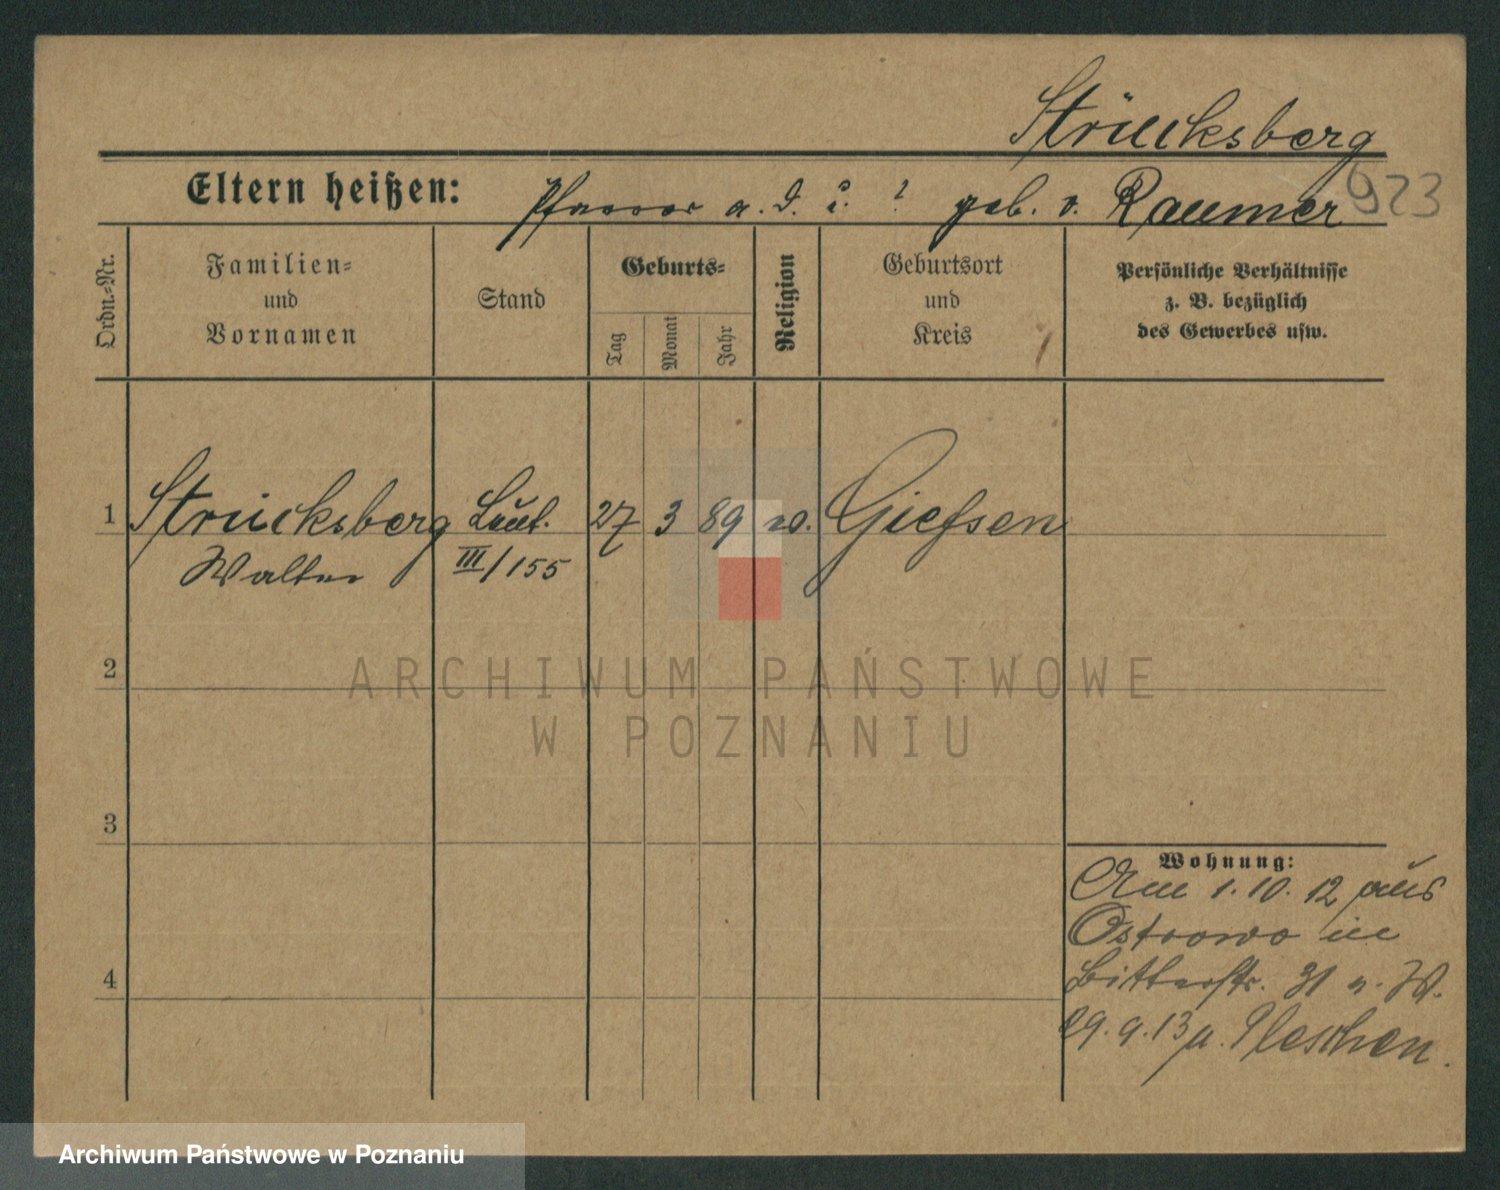 Strücksberg
Eltern heißen: Pfarrer a. D. u. ? geb. v. Raumer 923
Ordn.-Nr.
Familien-
und
Vornamen
Stand
Geburts-
Tag
Monat
Jahr
Religion
Geburtsort
und
Kreis
Persönliche Verhältnisse
z. B. bezüglich
des Gewerbes usw.
1 Strücksberg Leut. 27 3 89 Giefsen
Walter III/155
2
ARCHIWUM PAŃSTWOWE
W POZNANIU
3
Wohnung:
1. 10. 12 aus
Ostrowo in
31 n. W.
29. 9. 13 n. Pleschen.
4
Archiwum Państwowe w Poznaniu